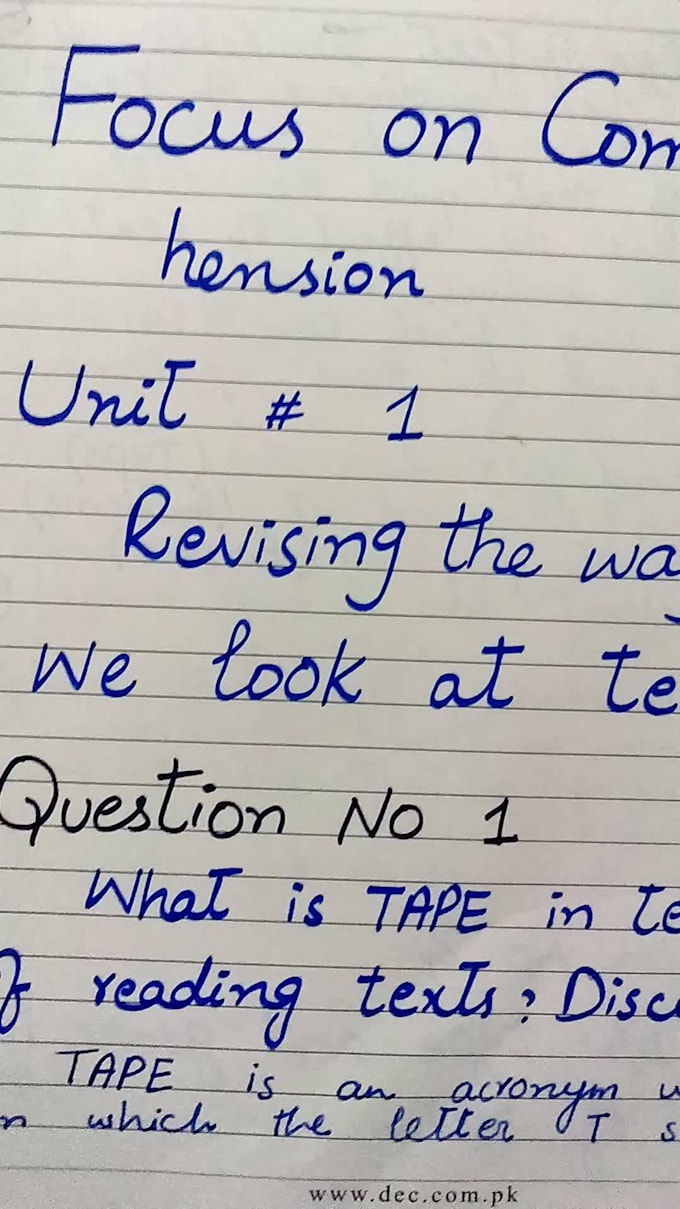 Focus on Com
hension
Unit # 1
Revising the wa
we look at te
Question No 1
What is TAPE in te
of reading texts? Discu
TAPE is an acronym w
n which the letter T s
www.dec.com.pk